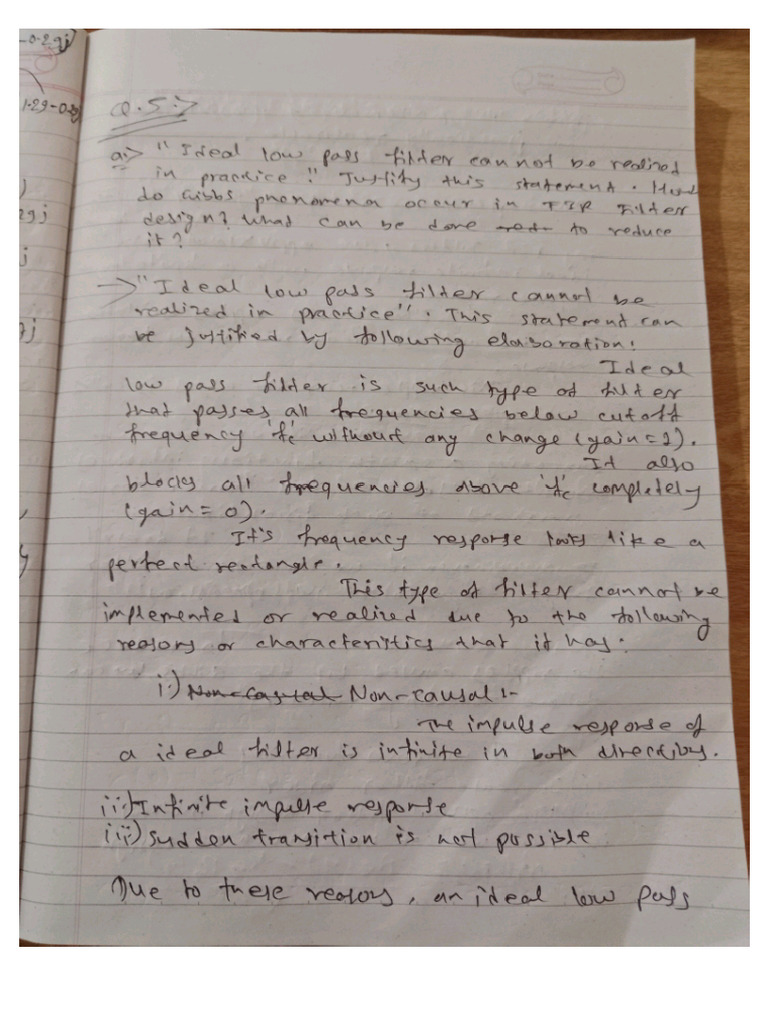 -0.29j
1.29-0.
Q.5:->
a:-> "Ideal low pass filter cannot be realized
in practice!" Justify this statement. How
do Gibbs phenomena occur in FIR Filter
design? What can be done to reduce
it?
-> "Ideal low pass filter cannot be
realized in practice". This statement can
be justified by following elaboration:
Ideal
low pass filter is such type of filter
that passes all frequencies below cutoff
frequency 'fc' without any change (gain=1).
It also
blocks all frequencies above 'fc' completely
(gain=0).
It's frequency response looks like a
perfect rectangle.
This type of filter cannot be
implemented or realized due to the following
reasons or characteristics that it has:
i:) Non-causal:-
The impulse response of
a ideal filter is infinite in both directions.
ii:) Infinite impulse response
iii) Sudden transition is not possible
Due to these reasons, an ideal low pass